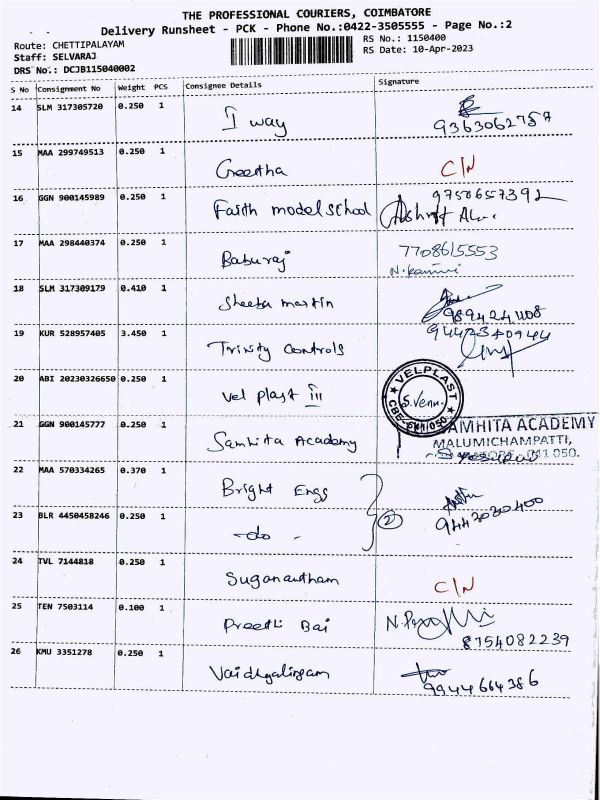 THE PROFESSIONAL COURIERS, COIMBATORE
Delivery Runsheet - PCK - Phone No.:0422-3505555 - Page No.:2
Route: CHETTIPALAYAM
RS No.: 1150400
Staff: SELVARAJ
RS Date: 10-Apr-2023
DRS No.: DCJB115040002
S No Consignment No Weight PCS Consignee Details Signature
14 SLM 317305720 0.250 1 I way 9363062757
15 MAA 299749513 0.250 1 Geetha C/N
16 GGN 900145989 0.250 1 Faith model school 9750657392
17 MAA 298440374 0.250 1 Baburaj 7708615553
18 SLM 317309179 0.410 1 Sheeba martin
19 KUR 528957405 3.450 1 Trinity Controls
20 ABI 20230326650 0.250 1 Vel plast III VELPLAST CBE-641 050. S.Venu.
21 GGN 900145777 0.250 1 Samhita Academy SAMHITA ACADEMY
MALUMICHAMPATTI,
22 MAA 570334265 0.370 1 Bright Engs
23 BLR 4450458246 0.250 1 -do- 2 9443030400
24 TVL 7144818 0.250 1 Suganantham C/N
25 TEN 7503114 0.100 1 Preethi Bai 8754082239
26 KMU 3351278 0.250 1 Vaidhyalingam 9944664386